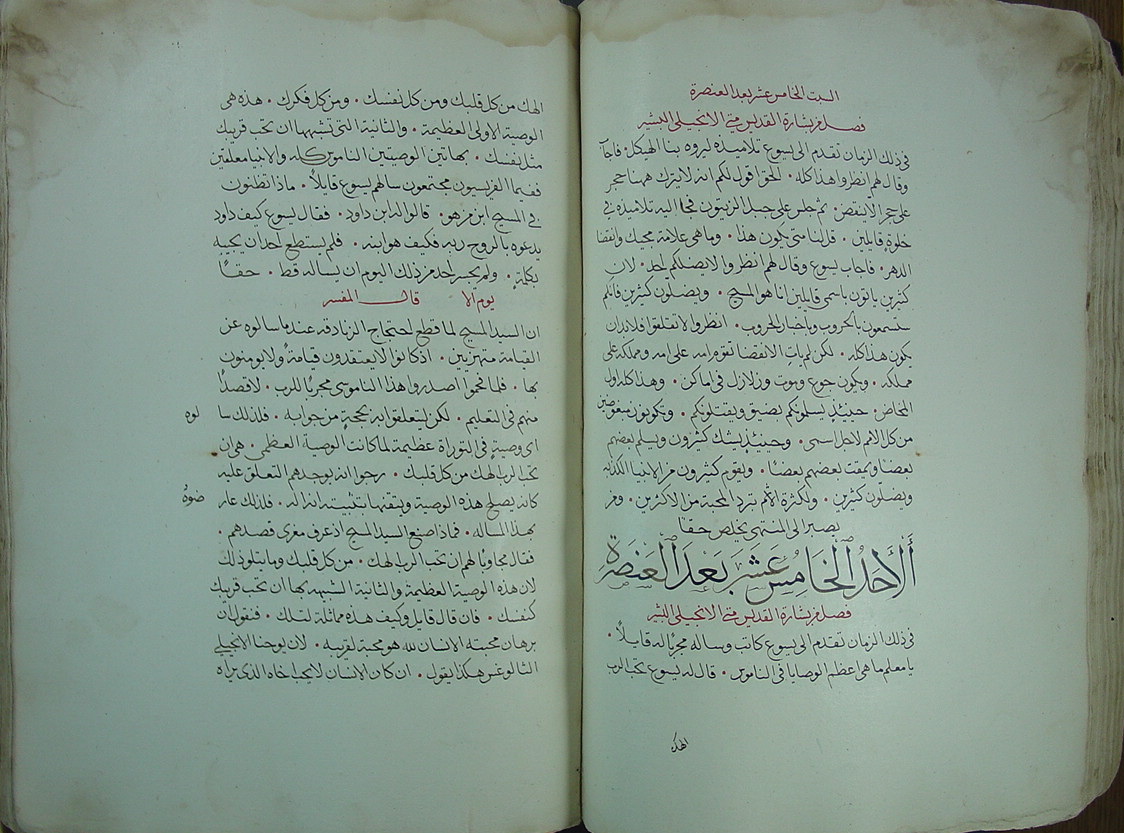 السبت الخامس عشر بعد العنصرة
فصل من بشارة القديس متى الانجيلي البشير
في ذلك الزمان تقدم الى يسوع تلاميذه ليروه بنا الهيكل • فاجاب
وقال لهم انظروا هذا كله • الحق اقول لكم انه لا يترك ههنا حجر
على حجر الا ينقض • ثم جلس على جبل الزيتون فجا اليه تلاميذه في
خلوة قايلين • قل لنا متى يكون هذا • وما هي علامة مجيك وانقضا
الدهر • فاجاب يسوع وقال لهم انظروا لا يضلكم احد • لان
كثيرين ياتون باسمي قايلين انا هو المسيح • ويضلون كثيرين فانكم
ستسمعون بالحروب وباخبار الحروب • انظروا لا تقلقوا فلا بد ان
يكون هذا كله • لكن لم يات الانقضا تقوم امه على امه ومملكة على
مملكه • ويكون جوع وموت وزلازل في اماكن • وهذا كله اول
المخاض • حينيذ يسلمونكم بضيق ويقتلونكم • وتكونون مبغوضين
من كل الامم لاجل اسمي • وحينيذ يشك كثيرون ويسلم بعضهم
بعضا ويمقت بعضهم بعضا • ويقوم كثيرون من الانبيا الكذبه
ويضلون كثيرين • ولكثرة الاثم تبرد المحبة من الاكثرين • ومن
يصبر الى المنتهى يخلص حقا
الأحد الخامس عشر بعد العنصرة
فصل من بشارة القديس متى الانجيلي البشير
في ذلك الزمان تقدم الى يسوع كاتب وساله مجربا له قايلا •
يا معلم ما هي اعظم الوصايا في الناموس • قال له يسوع تحب الرب
الهك
الهك من كل قلبك ومن كل نفسك • ومن كل فكرك • هذه هي
الوصية الاولى العظيمة • والثانية التي تشبهها ان تحب قريبك
مثل نفسك • بهاتين الوصيتين الناموس كله والانبيا معلقين
ففيما الفريسيون مجتمعون سالهم يسوع قايلا • ماذا تظنون
في المسيح ابن من هو • قالوا له ابن داود • فقال يسوع كيف داود
يدعوه بالروح ربه فكيف هو ابنه • فلم يستطع احد ان يجيبه
بكلمة • ولم يجسر احد من ذلك اليوم ان يساله قط • حقا
يوم الا قال المفسر
ان السيد المسيح لما قطع احتجاج الزنادقه عند ما سالوه عن
القيامة منهزمين • اذ كانوا لا يعتقدون قيامة ولا يومنون
بها • فلما افحموا اصدروا هذا الناموسي مجربا للرب • لا قصدا
منهم في التعليم • لكن ليتعلقوا به بحجة من جوابه • فلذلك سا لوه
اي وصية في التوراة عظيمة لما كانت الوصية العظمى هي ان
تحب الرب الهك من كل قلبك • رجوا انه يوجدهم التعلق عليه
كانه يصلح هذه الوصية ويتقنها بتثبيته انه اله • فلذلك عار ضوه
بهذا المساله • فماذا صنع السيد المسيح اذ عرف مغزى قصدهم •
فقال مجاوبا لهم ان تحب الرب الهك • من كل قلبك وما يتلو ذلك
لان هذه الوصية العظيمة والثانية الشبيهه بها ان تحب قريبك
كنفسك • فان قال قايل وكيف هذه مماثلة لتلك • فنقول ان
برهان محبته الانسان لله هو محبة لقريبه • لان يوحنا الانجيلي
الثالوغس هكذا يقول • ان كان الانسان لا يحب اخاه الذي يراه